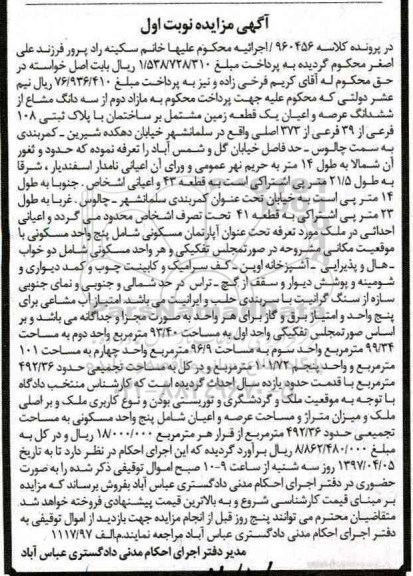 آگهی مزایده نوبت اول
در پرونده کلاسه ۹۶۰۴۵۶ /اجرائیه محکوم علیها خانم سکینه راد پرور فرزند علی
اصغر محکوم گردیده به پرداخت مبلغ ۱/۵۳۸/۷۲۸/۳۱۰ ریال بابت اصل خواسته در
حق محکوم له آقای کریم فرخی زاده و نیز به پرداخت مبلغ ۷۶/۹۳۶/۴۱۰ ریال نیم
عشر دولتی که محکوم علیه جهت پرداخت محکوم به مازاد دوم از سه دانگ مشاع از
ششدانگ عرصه و اعیان یک قطعه زمین مشتمل بر ساختمان با پلاک ثبتی ۱۰۸
فرعی از ۳۹ فرعی از ۳۷۳ اصلی واقع در سلمانشهر خیابان دهکده شیرین ـ کمربندی
به سمت چالوس ـ حد فاصل خیابان گل و شمس آباد را تعرفه نموده که حدود و ثغور
آن شمالا به طول ۱۴ متر به حریم نهر عمومی و ورای آن اعیانی نامدار اسفندیار ، شرقا
به طول ۲۱/۵ متر پی اشتراکی ست به قطعه ۴۳ و اعیانی اشخاص . جنوبا به طول
۱۴ متر پی است به خیابان تحت عنوان کمربندی سلمانشهر ـ چالوس . غربا به طول
۲۳ متر پی اشتراکی به قطعه ۴۱ تحت تصرف اشخاص محدود می گردد و اعیانی
احداثی در ملک مورد تعرفه تحت عنوان آپارتمان مسکونی شامل پنج واحد مسکونی با
موقعیت مکانی مشروحه در صورتمجلس تفکیکی و هر واحد مسکونی شامل دو خواب
ـ هال و پذیرایی ـ آشپزخانه اوپن ـ کف سرامیک و کابینت چوب و کمد دیواری و
شومینه و پوشش دیوار و سقف از گچ ـ تراس در حد شمالی و جنوبی و نمای جنوبی
سازه از سنگ گرانیت با سربندی حلب و ایرانیت می باشد. امتیاز آب مشاعی برای
پنج واحد و امتیاز برق و گاز برای هر واحد به صورت مجزا و جداگانه می باشد و بر
اساس صورتمجلس تفکیکی واحد اول به مساحت ۹۳/۴۰ مترمربع واحد دوم به مساحت
۹۹/۳۴ مترمربع واحد سوم به مساحت ۹۶/۹ مترمربع واحد چهارم به مساحت ۱۰۱
مترمربع و واحد پنجم ۱۰۱/۷۲ مترمربع و در کل به مساحت تجمیعی حدود ۴۹۲/۳۶
مترمربع با قدمت حدود یازده سال احداث گردیده است که کارشناس منتخب دادگاه
با توجه به موقعیت ملک و گردشگری و توریستی بودن و نوع کاربری ملک و بر اصلی
ملک و میزان متراژ و مساحت عرصه و اعیان شامل پنج واحد مسکونی به مساحت
تجمیعی حدود ۴۹۲/۳۶ مترمربع از قرار هر مترمربع ۱۸/۰۰۰/۰۰۰ ریال و در کل به
مبلغ ۸/۸۶۲/۴۸۰/۰۰۰ ریال برآورد گردیده که این اجرای احکام در نظر دارد تا به تاریخ
۱۳۹۷/۰۴/۰۵ روز سه شنبه از ساعت ۹-۱۰ صبح اموال توقیفی ذکر شده را به صورت
حضوری در دفتر اجرای احکام مدنی دادگستری عباس آباد بفروش برساند که مزایده
بر مبنای قیمت کارشناسی شروع و به بالاترین قیمت پیشنهادی فروخته خواهد شد
متقاضیان محترم می توانند پنج روز قبل از انجام مزایده جهت بازدید از اموال توقیفی به
دفتر اجرای احکام مدنی دادگستری عباس آباد مراجعه نمایند.م/الف ۱۱۱۷/۹۷
مدیر دفتر اجرای احکام مدنی دادگستری عباس آباد